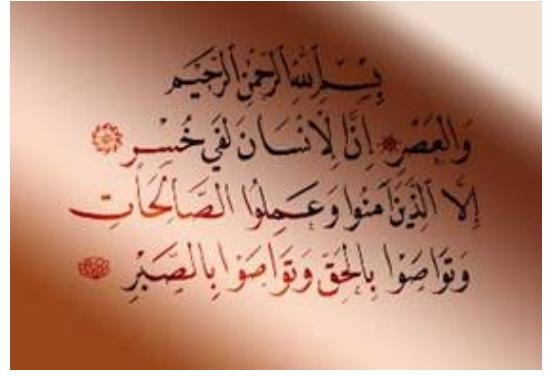 بِسْمِ ٱللَّهِ ٱلرَّحْمَٰنِ ٱلرَّحِيمِ
وَالْعَصْرِ إِنَّ الْإِنْسَانَ لَفِي خُسْرٍ
إِلَّا الَّذِينَ آمَنُوا وَعَمِلُوا الصَّالِحَاتِ
وَتَوَاصَوْا بِالْحَقِّ وَتَوَاصَوْا بِالصَّبْرِ